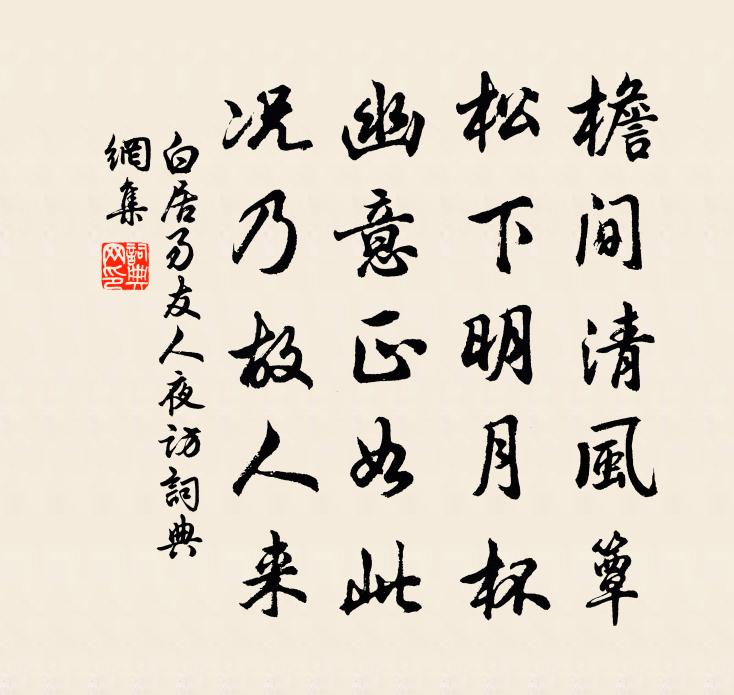 檐間清風簟
松下明月杯
幽意正如此
况乃故人来
白居易友人夜访詞典
網集
詞典網印